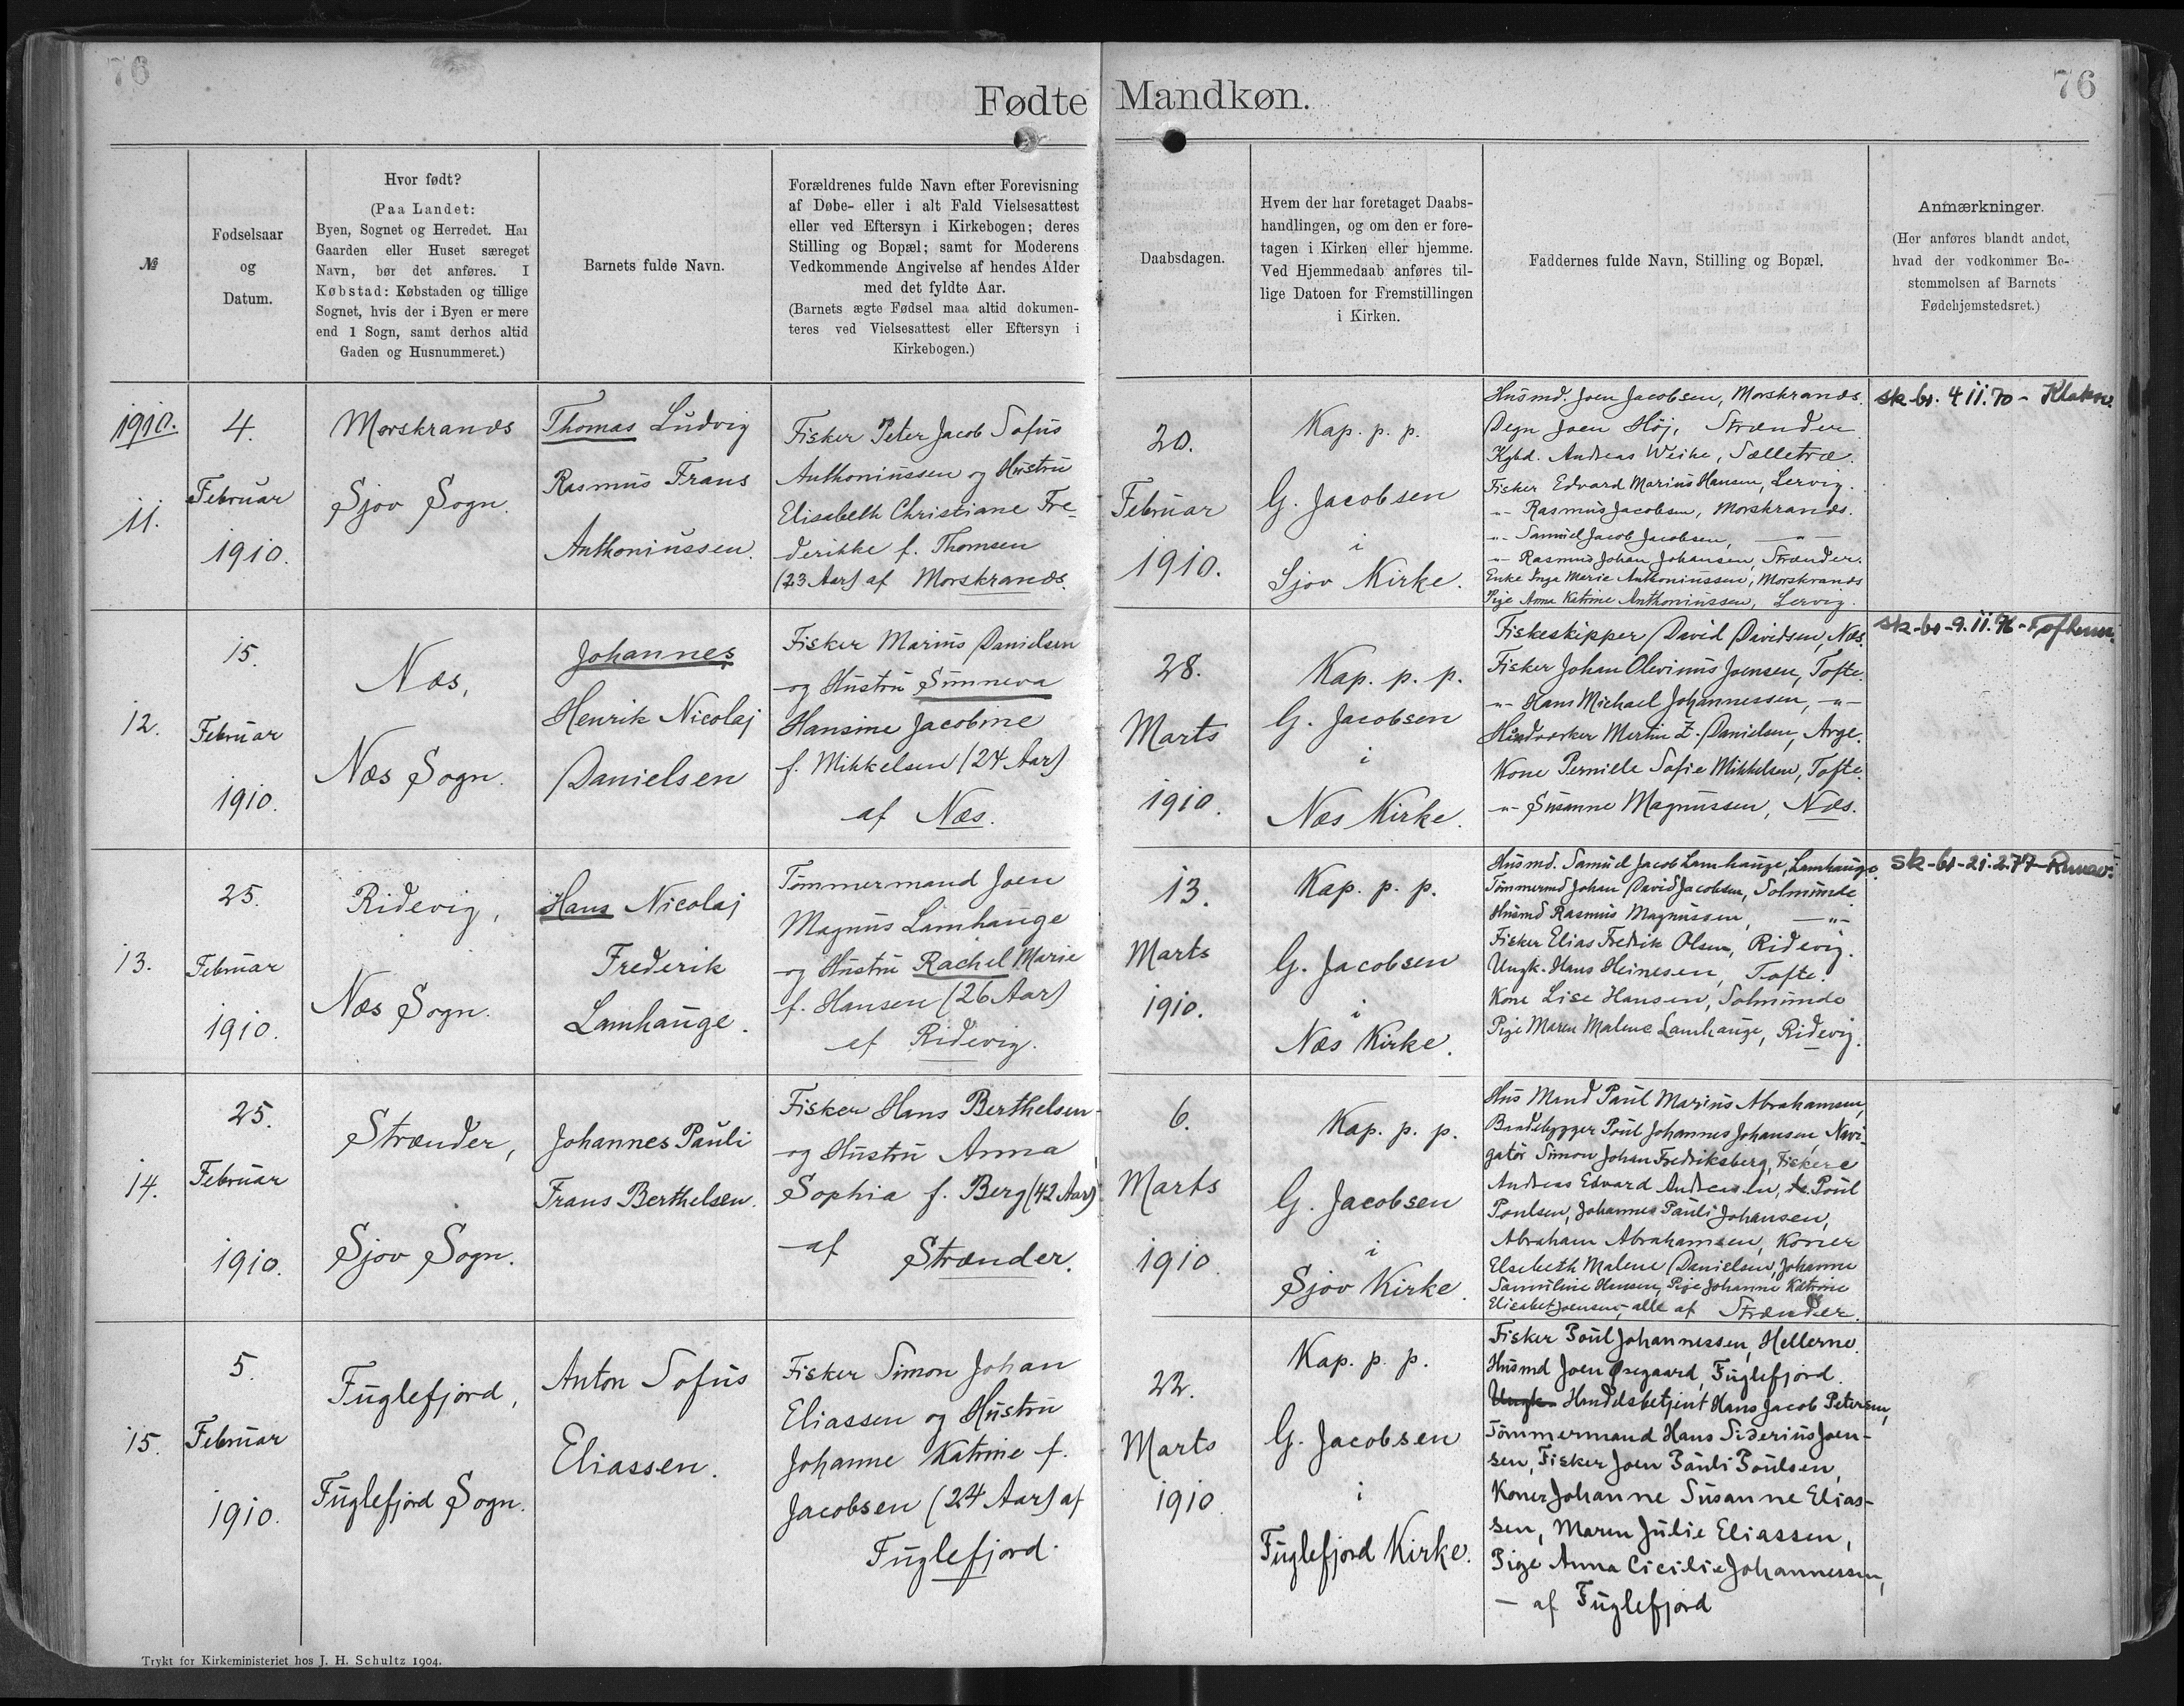 76
76
Fødte Mandkøn.
№
Fødselsaar
og
Datum.
Hvor født?
(Paa Landet:
Byen, Sognet og Herredet. Har
Gaarden eller Huset særeget
Navn, bør det anføres. I
Købstad: Købstaden og tillige
Sognet, hvis der i Byen er mere
end 1 Sogn, samt derhos altid
Gaden og Husnummeret.)
Barnets fulde Navn.
Forældrenes fulde Navn efter Forevisning
af Døbe- eller i alt Fald Vielsesattest
eller ved Eftersyn i Kirkebogen; deres
Stilling og Bopæl; samt for Moderens
Vedkommende Angivelse af hendes Alder
med det fyldte Aar.
(Barnets ægte Fødsel maa altid dokumen-
teres ved Vielsesattest eller Eftersyn i
Kirkebogen.)
Daabsdagen.
Hvem der har foretaget Daabs-
handlingen, og om den er fore-
tagen i Kirken eller hjemme.
Ved Hjemmedaab anføres til-
lige Datoen for Fremstillingen
i Kirken.
Faddernes fulde Navn, Stilling og Bopæl.
Anmærkninger.
(Her anføres blandt andet,
hvad der vedkommer Be-
stemmelsen af Barnets
Fødehjemstedsret.)
1910.
11.
4.
Februar
1910.
Morskranes
Sjov Sogn.
Thomas Ludvig
Rasmus Frans
Anthoniussen.
Fisker Peter Jacob Sofus
Anthoniussen og Hustru
Elisabeth Christiane Fre-
derikke f. Thomsen
(23 Aar) af Morskranes.
20.
Februar
1910.
Kap. p. p.
G. Jacobsen
i
Sjov Kirke.
Husmd. Joen Jacobsen, Morskranes.
Degn Joen Høj, Strænder
Kgbd. Andreas Weihe, Sælletræ.
Fisker Edvard Marius Hansen, Lervig.
-"- Rasmus Jacobsen, Morskranes.
-"- Samuel Jacob Jacobsen, -"-
-"- Rasmus Johan Johansen, Strænder.
Enke Inga Marie Anthoniussen, Morskranes
Pige Anna Katrine Anthoniussen, Lervig.
sk-br. 4 11. 70 -
12.
15.
Februar
1910.
Næs,
Næs Sogn.
Johannes
Henrik Nicolaj
Danielsen
Fisker Marius Danielsen
og Hustru Sunneva
Hansine Jacobine
f. Mikkelsen (24 Aar)
af Næs.
28.
Marts
1910.
Kap. p. p.
G. Jacobsen
i
Næs Kirke.
Fiskeskipper David Davidsen, Næs.
Fisker Johan Olevinus Joensen, Tofte.
-"- Hans Michael Johannessen, -"-
Haandværker Martin Z. Danielsen, Æge.
Kone Pernille Sofie Mikkelsen, Tofte.
-"- Susanne Magnussen, Næs.
sk-br-9.11.96-
13.
25.
Februar
1910.
Ridevig,
Næs Sogn.
Hans Nicolaj
Frederik
Lamhauge.
Tømmermand Joen
Magnus Lamhauge
og Hustru Rachel Marie
f. Hansen (26 Aar)
af Ridevig.
13.
Marts
1910.
Kap. p. p.
G. Jacobsen
i
Næs Kirke.
Husmd. Samuel Jacob Lamhauge, Lamhauge.
Tømmermd Johan David Jacobsen, Solmunde
Husmd Rasmus Magnussen, -"-
Fisker Elias Fredrik Olsen, Ridevig.
Ungk. Hans Heinesen, Tofte.
Kone Lise Hansen, Solmunde
Pige Maren Malene Lamhauge, Ridevig.
sk-br-21.2.77-
14.
25.
Februar
1910.
Strænder,
Sjov Sogn.
Johannes Pauli
Frans Berthelsen.
Fisker Hans Berthelsen
og Hustru Anna
Sophia f. Berg (42 Aar)
af Strænder.
6.
Marts
1910.
Kap. p. p.
G. Jacobsen
i
Sjov Kirke.
Hus Mand Paul Marius Abrahamsen,
Baadebygger Poul Johannes Johansen, Navi-
gatør Simon Johan Fredriksberg, Fiskere
Andreas Edvard Andreasen, Poul
Poulsen, Johannes Pauli Johansen,
Abraham Abrahamsen, Koner
Elsebeth Malene Danielsen, Johanne
Sanneline Hansen, Pige Johanne Katrine
Elisabet Joensen, alle af Strænder.
15.
5.
Februar
1910.
Fuglefjord,
Fuglefjord Sogn.
Anton Sofus
Eliassen.
Fisker Simon Johan
Eliassen og Hustru
Johanne Katrine f.
Jacobsen (24 Aar) af
Fuglefjord.
22.
Marts
1910
Kap. p. p.
G. Jacobsen
i
Fuglefjord Kirke.
Fisker Poul Johannessen, Hellerne.
Husmd Joen Øregaard, Fuglefjord.
Ungk. Handelsbetjent Hans Jacob Petersen,
Tømmermand Hans Siderius Joen-
sen, Fisker Joen Pauli Poulsen,
Koner Johanne Susanne Elias-
sen, Maren Julie Eliassen,
Pige Anna Cicilie Johannessen,
- af Fuglefjord
Trykt for Kirkeministeriet hos J. H. Schultz 1904.